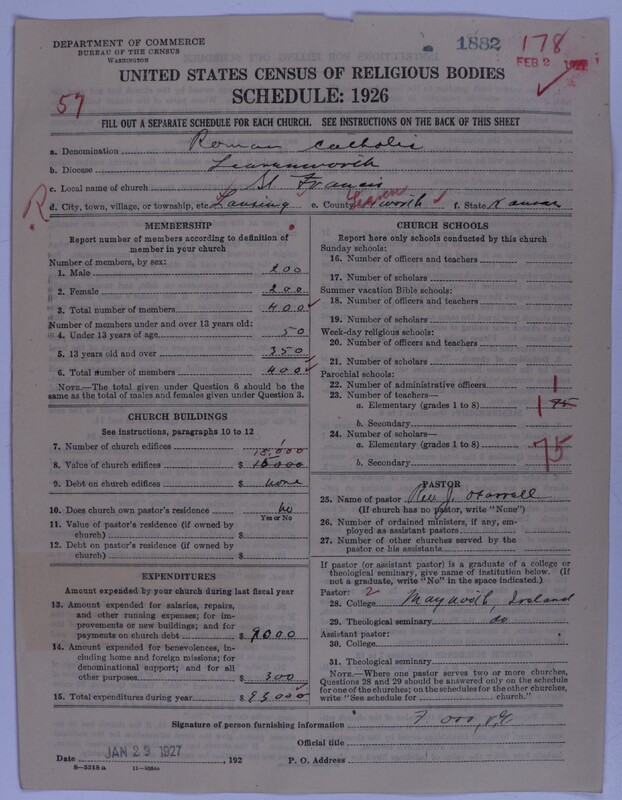 DEPARTMENT OF COMMERCE
BUREAU OF THE CENSUS
WASHINGTON
1882
178
FEB 2
UNITED STATES CENSUS OF RELIGIOUS BODIES
SCHEDULE: 1926
57
FILL OUT A SEPARATE SCHEDULE FOR EACH CHURCH. SEE INSTRUCTIONS ON THE BACK OF THIS SHEET
a. Denomination Roman Catholic
b. Diocese Leavenworth
c. Local name of church St Francis
R d. City, town, village, or township, etc. Lansing e. County worth f. State Kansas
MEMBERSHIP
Report number of members according to definition of
member in your church
Number of members, by sex:
1. Male 200
2. Female 200
3. Total number of members 400
Number of members under and over 13 years old:
4. Under 13 years of age 50
5. 13 years old and over 350
6. Total number of members 400
NOTE.—The total given under Question 6 should be
same as the total of males and females given under Question 3.
CHURCH BUILDINGS
See instructions, paragraphs 10 to 12
7. Number of church edifices 1
15,000
8. Value of church edifices $
9. Debt on church edifices $ none
10. Does church own pastor's residence no
Yes or No
11. Value of pastor's residence (if owned by
church) $
12. Debt on pastor's residence (if owned by
church) $
EXPENDITURES
Amount expended by your church during last fiscal year
13. Amount expended for salaries, repairs,
and other running expenses; for im-
provements or new buildings; and for
payments on church debt $ 9000
14. Amount expended for benevolences, in-
cluding home and foreign missions; for
denominational support; and for all
other purposes 300
15. Total expenditures during year $
CHURCH SCHOOLS
Report here only schools conducted by this church
Sunday schools:
16. Number of officers and teachers
17. Number of scholars
Summer vacation Bible schools:
18. Number of officers and teachers
19. Number of scholars
Week-day religious schools:
20. Number of officers and teachers
21. Number of scholars
Parochial schools:
22. Number of administrative officers 1
23. Number of teachers—
a. Elementary (grades 1 to 8) 1 75
b. Secondary
24. Number of scholars—
a. Elementary (grades 1 to 8) 75
b. Secondary
PASTOR
25. Name of pastor Rev J. O'Farrell
(If church has no pastor, write "None")
26. Number of ordained ministers, if any, em-
ployed as assistant pastors
27. Number of other churches served by the
pastor or his assistants
If pastor (or assistant pastor) is a graduate of a college or
theological seminary, give name of institution below. (If
not a graduate, write "No" in the space indicated.)
Pastor: 2
28. College Maynooth, Ireland
29. Theological seminary do
Assistant pastor:
30. College
31. Theological seminary
NOTE.—Where one pastor serves two or more churches,
Questions 28 and 29 should be answered only on the schedule
for one of the churches; on the schedules for the other churches,
write "See schedule for church."
Signature of person furnishing information
Official title
Date JAN 29 1927, 192 P. O. Address
8-3318 a